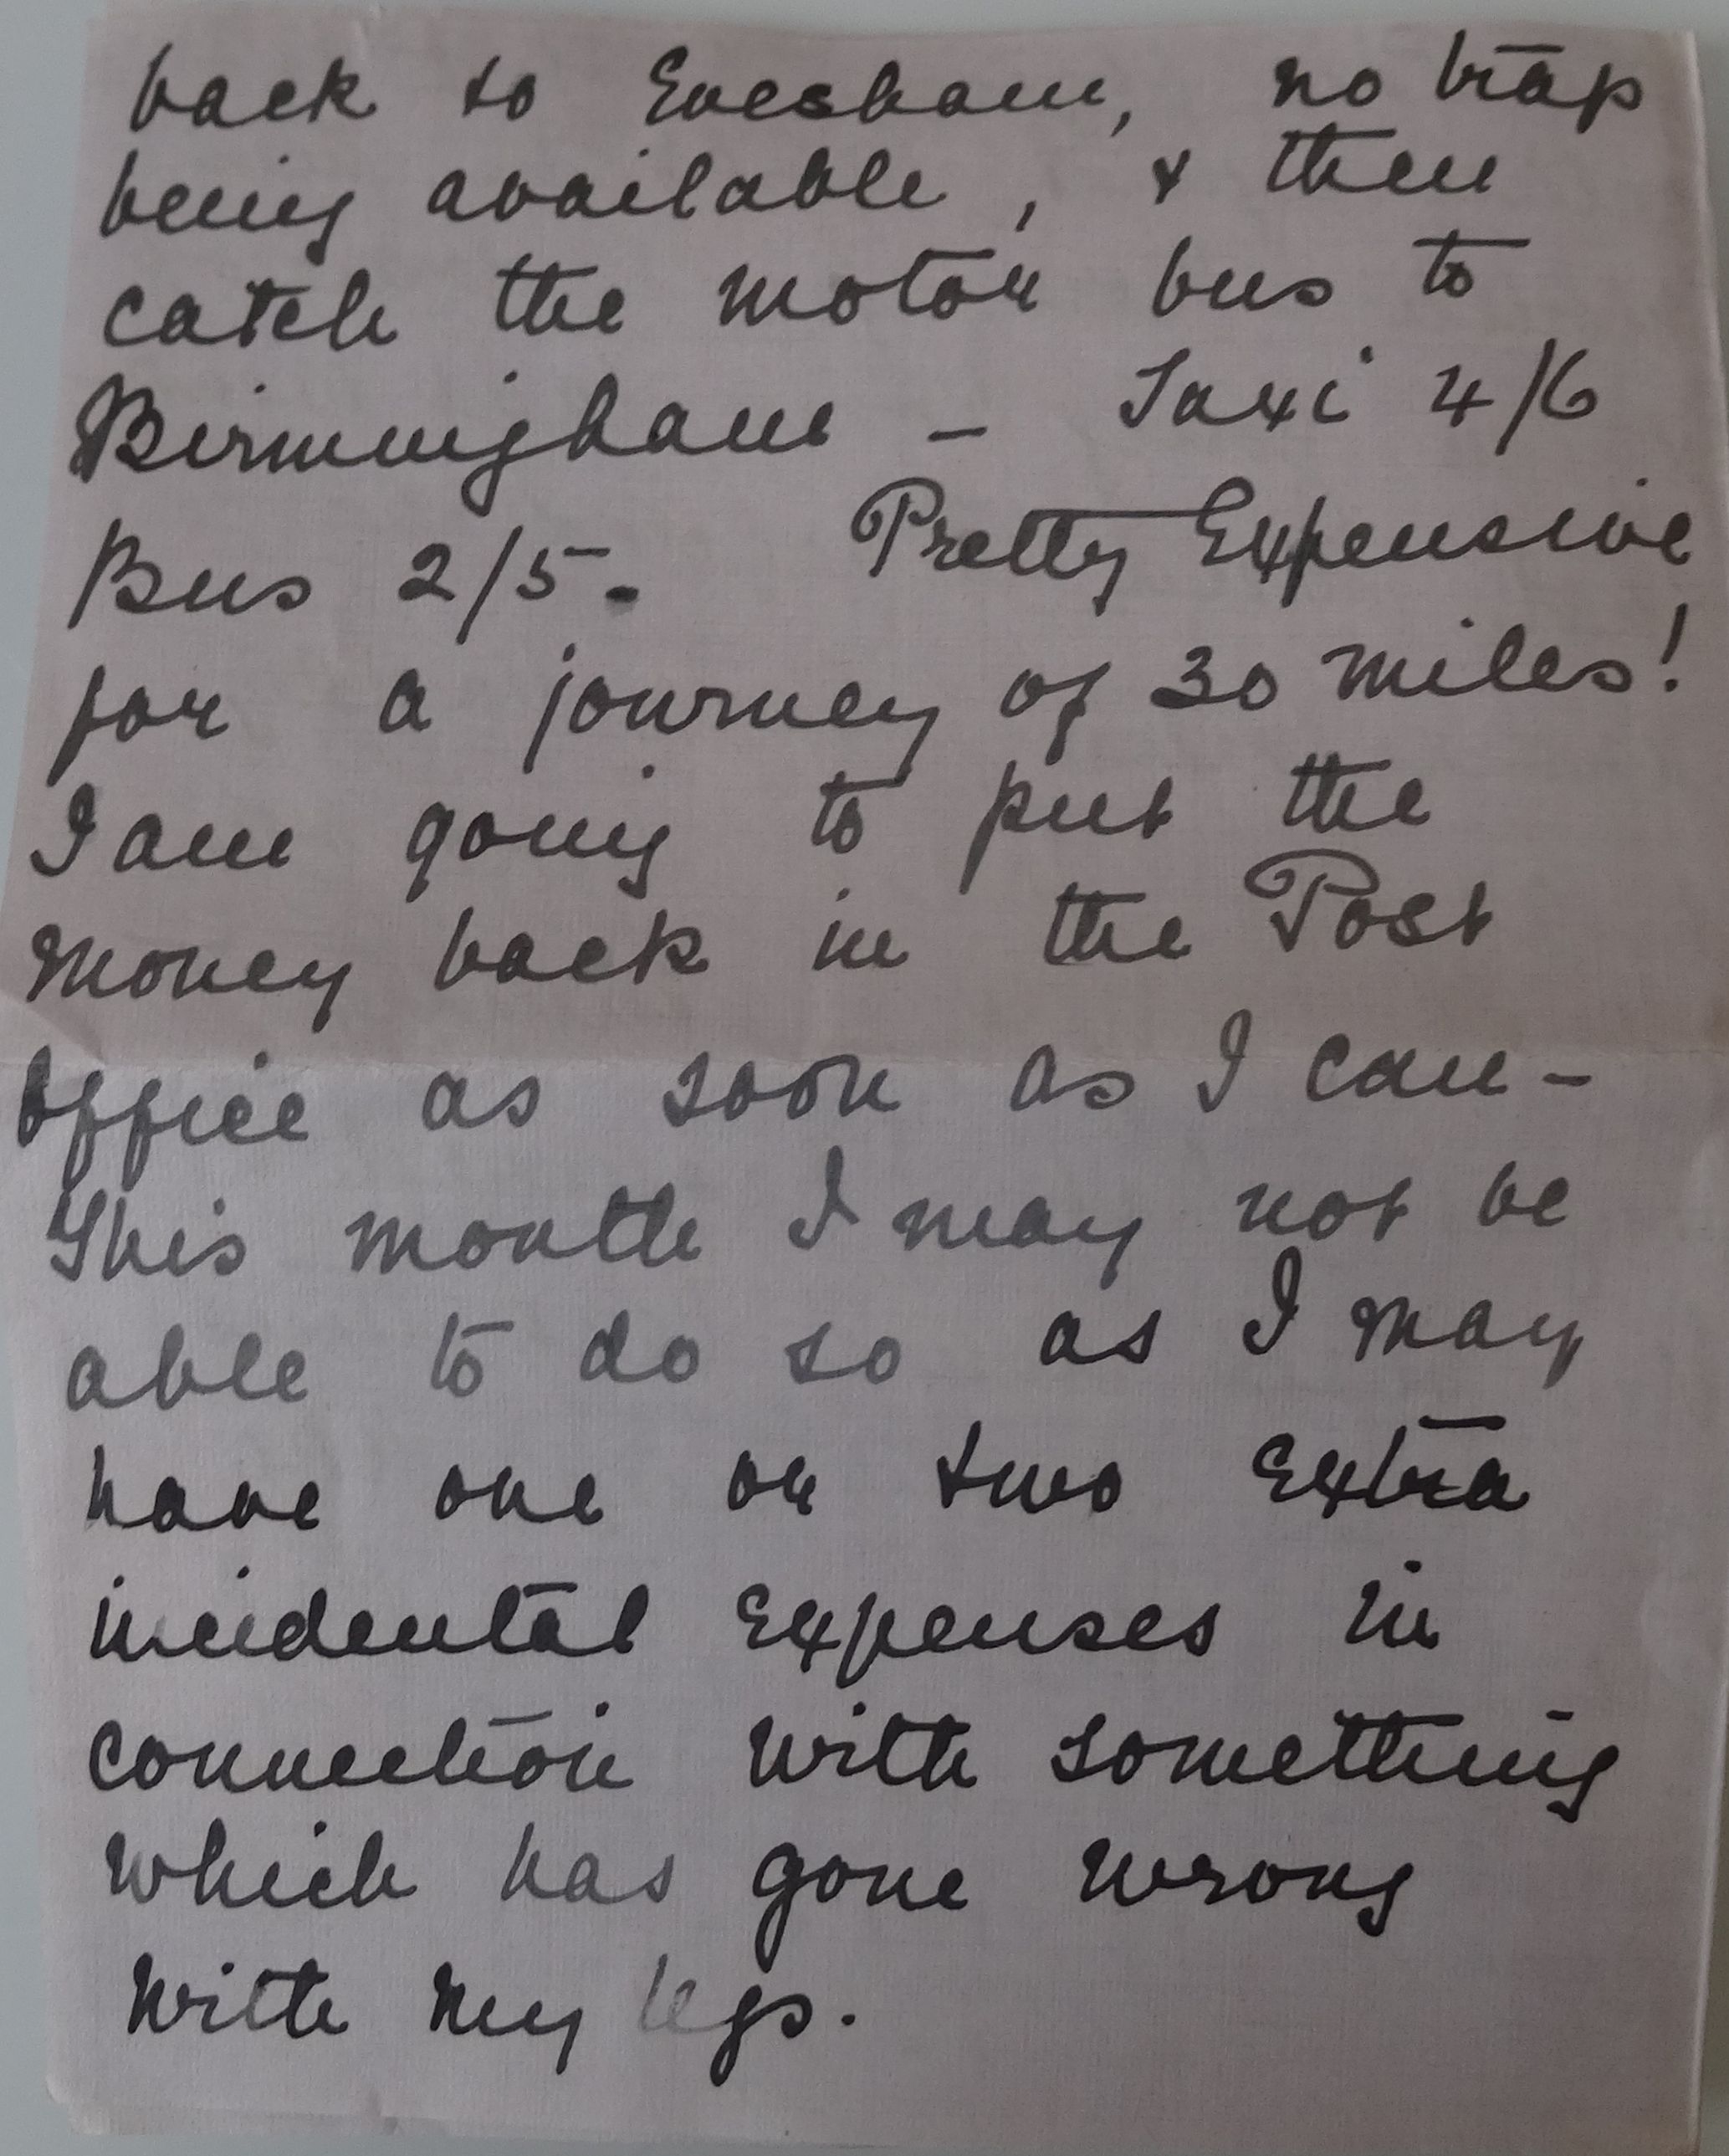 back to Evesham, no trap
being available, & then
catch the motor bus to
Birmingham - Taxi 4/6
Bus 2/5-. Pretty Expensive
for a journey of 30 miles!
I am going to put the
money back in the Post
Office as soon as I can -
This month I may not be
able to do so as I may
have one or two Extra
incidental Expenses in
connection with something
which has gone wrong
with my legs.